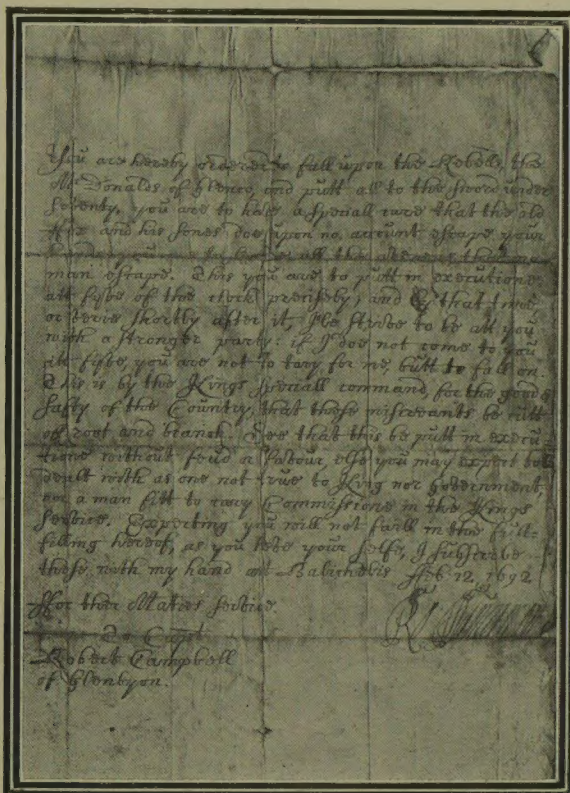 You are hereby ordered to fall upon the Rebells, the
McDonalds of Glenco, and putt all to the sword under
seventy. you are to have a speciall care that the old
ffox and his sones doe upon no account escape your
hands, you are to secure all the avenues that no
man escape. This you are to putt in executione
att fyve of the clock precisely; and by that time
or verie shortly after it, I'le stryve to be att you
with a stronger party: if I doe not come to you
att fyve, you are not to tary for me, butt to fall on.
This is by the Kings speciall command, for the good &
safty of the Country, that these miscreants be cutt
off root and branch. See that this be putt in execu-
tione without feud or favour, else you may expect to be
dealt with as one not true to King nor Government,
nor a man fitt to cary Commissione in the Kings
service. Expecting you will not faill in the full-
filling hereof, as you love your selfe, I subscrive
these with my hand att Balicholis ffeb. 12, 1692
ffor ther Maties service.
To Capt
Robert Campbell
of Glenlyon.